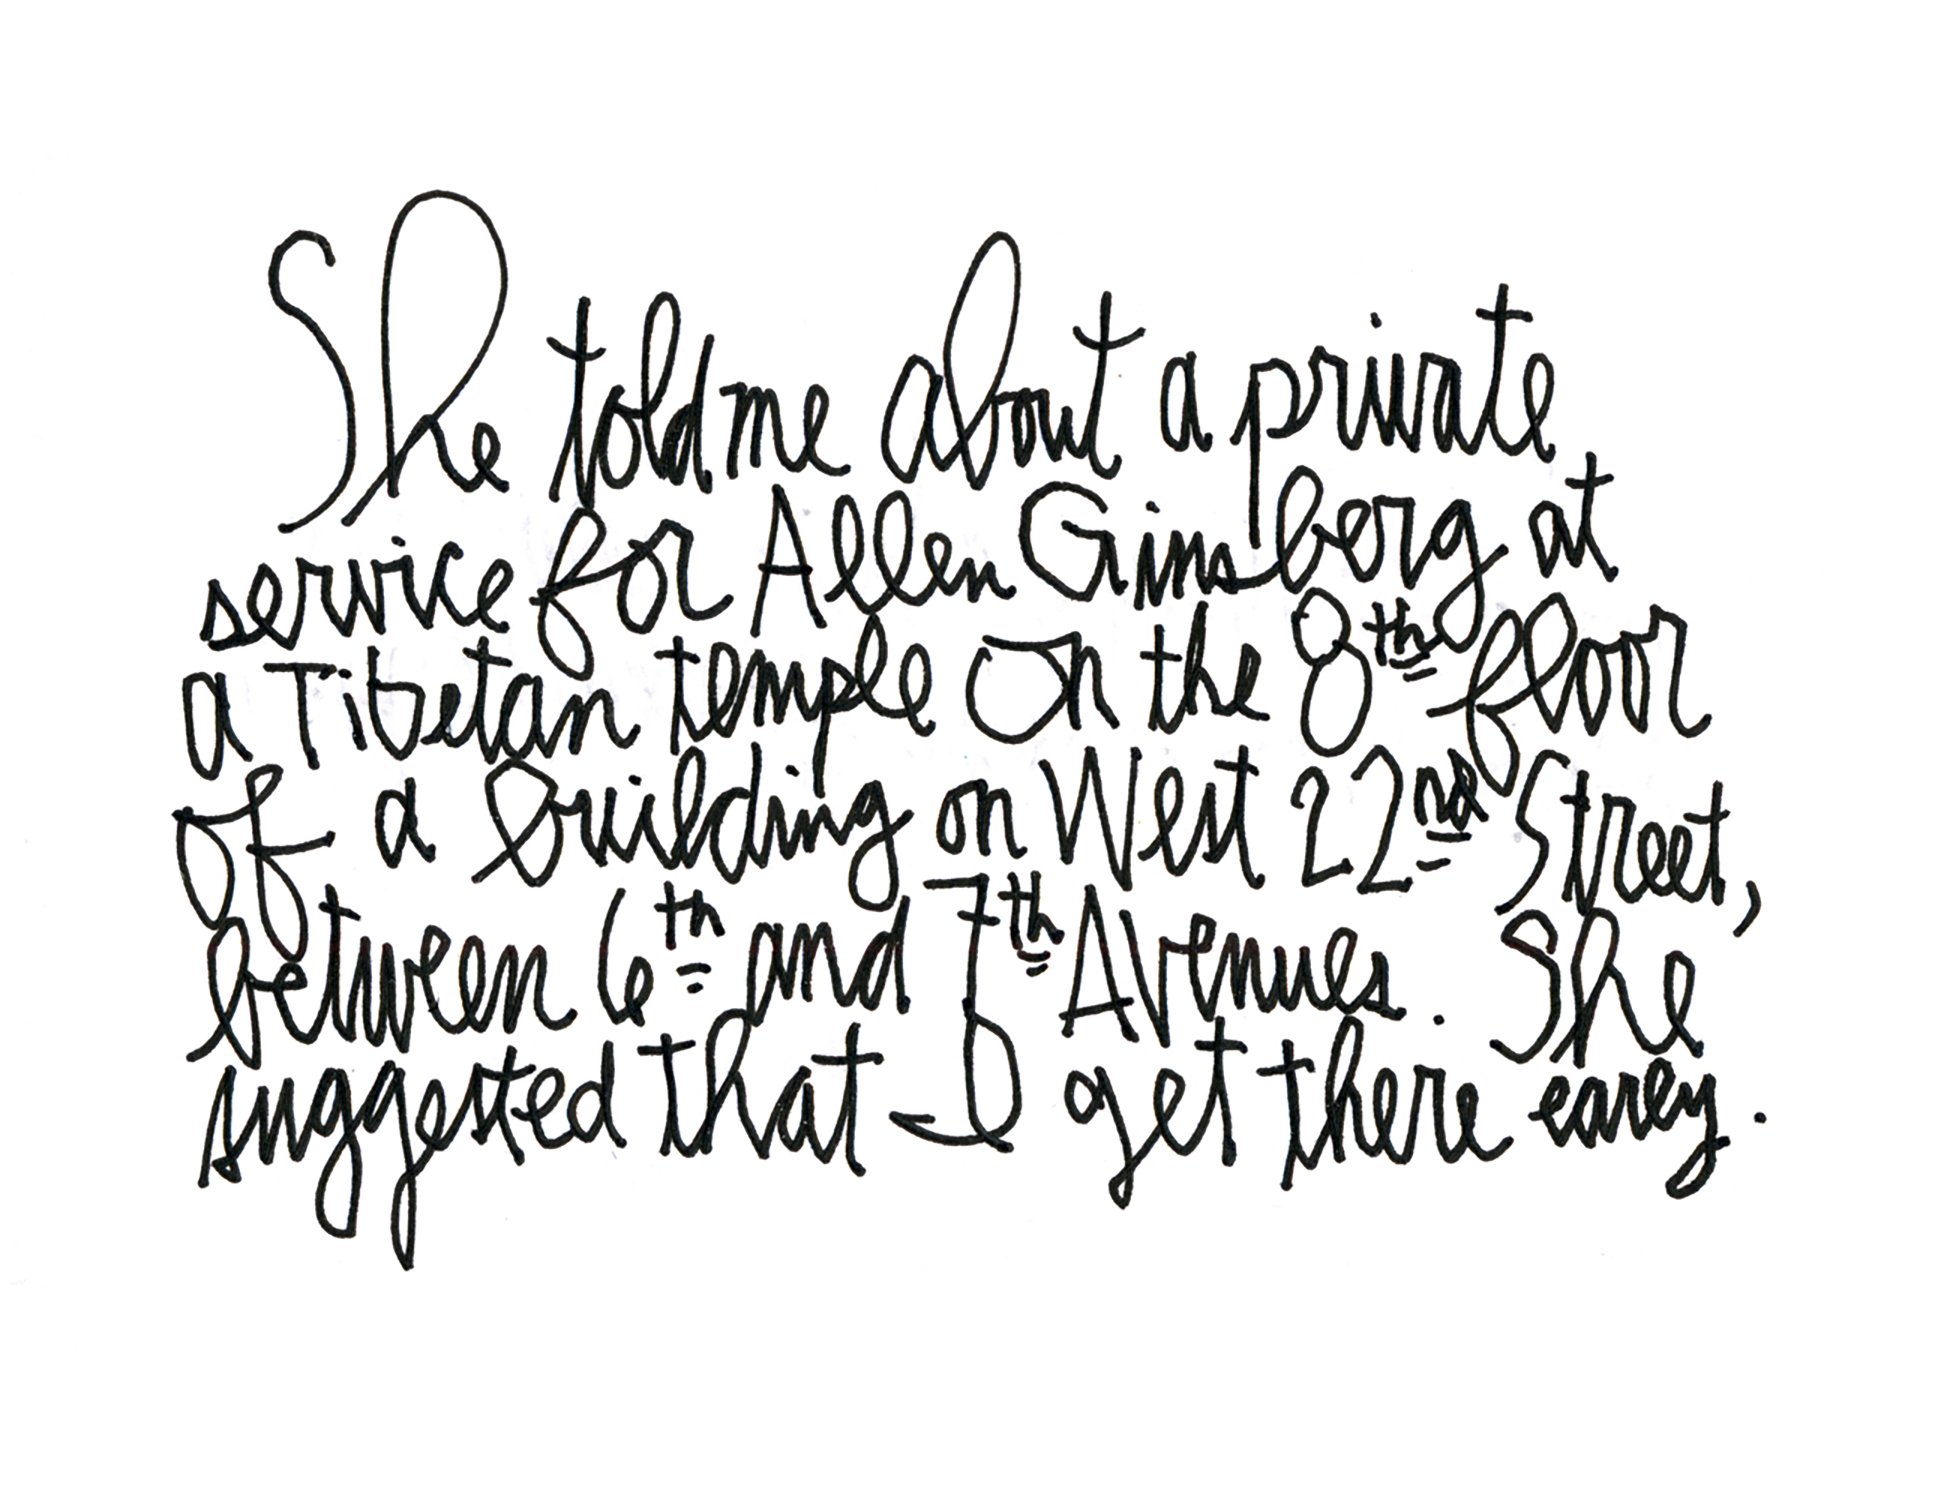 She told me about a private
service for Allen Ginsberg at
a Tibetan temple on the 8th floor
of a building on West 22nd Street,
between 6th and 7th Avenues. She
suggested that I get there early.